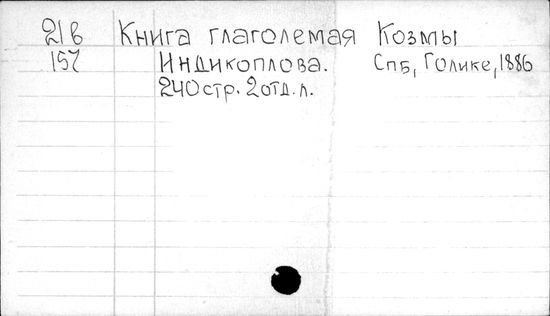 21в Книга глаголемая Козмы
157 Индикоплова. Спб, Голике, 1886
240 стр. 2 отд. л.